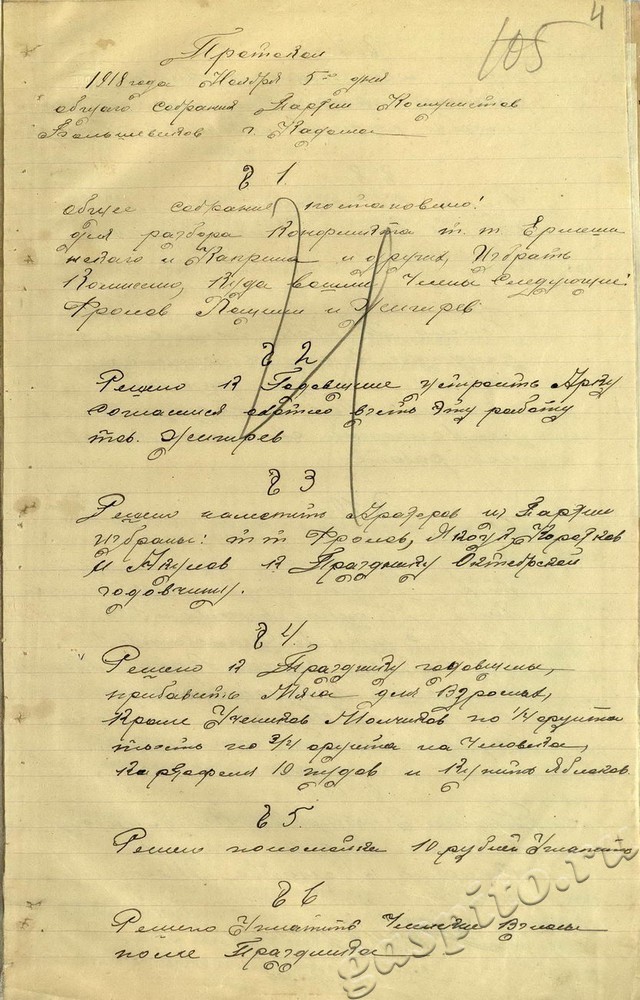 4
105
Протокол
1918 года Ноября 5го дня
общаго собрания Партии Комунистов
Большевиков г. Кадома
§ 1.
общее собрание постановило:
для разбора Конфликта т.т. Ермеши
нскаго и и других, Избрать
Комиссию, Куда вошли Члены Следующии:
Фролов Пашин и Жигирев
§ 2
Решено к Годовщине устроить Арку
согласился взять эту работу
тов. Жигирев
§ 3
Решено наметить Аратеров из Партии
Избраны: т т Фролов, Коротков
и Акулов к Празднику Октябрской
годовчины.
§ 4.
Решено к Празднику годовщины,
прибавить Мяса для Взрослых,
Кроме Учеников Мальчиков по 1/4 фунта
тоесть по 3/4 фунта на Человека,
Картофеля 10 пудов и Купить Яблоков.
§ 5.
Решено 10 рублей Уплатить
§ 6
Решено Уплатить Членские Взносы
после Праздника
gaspito.ru